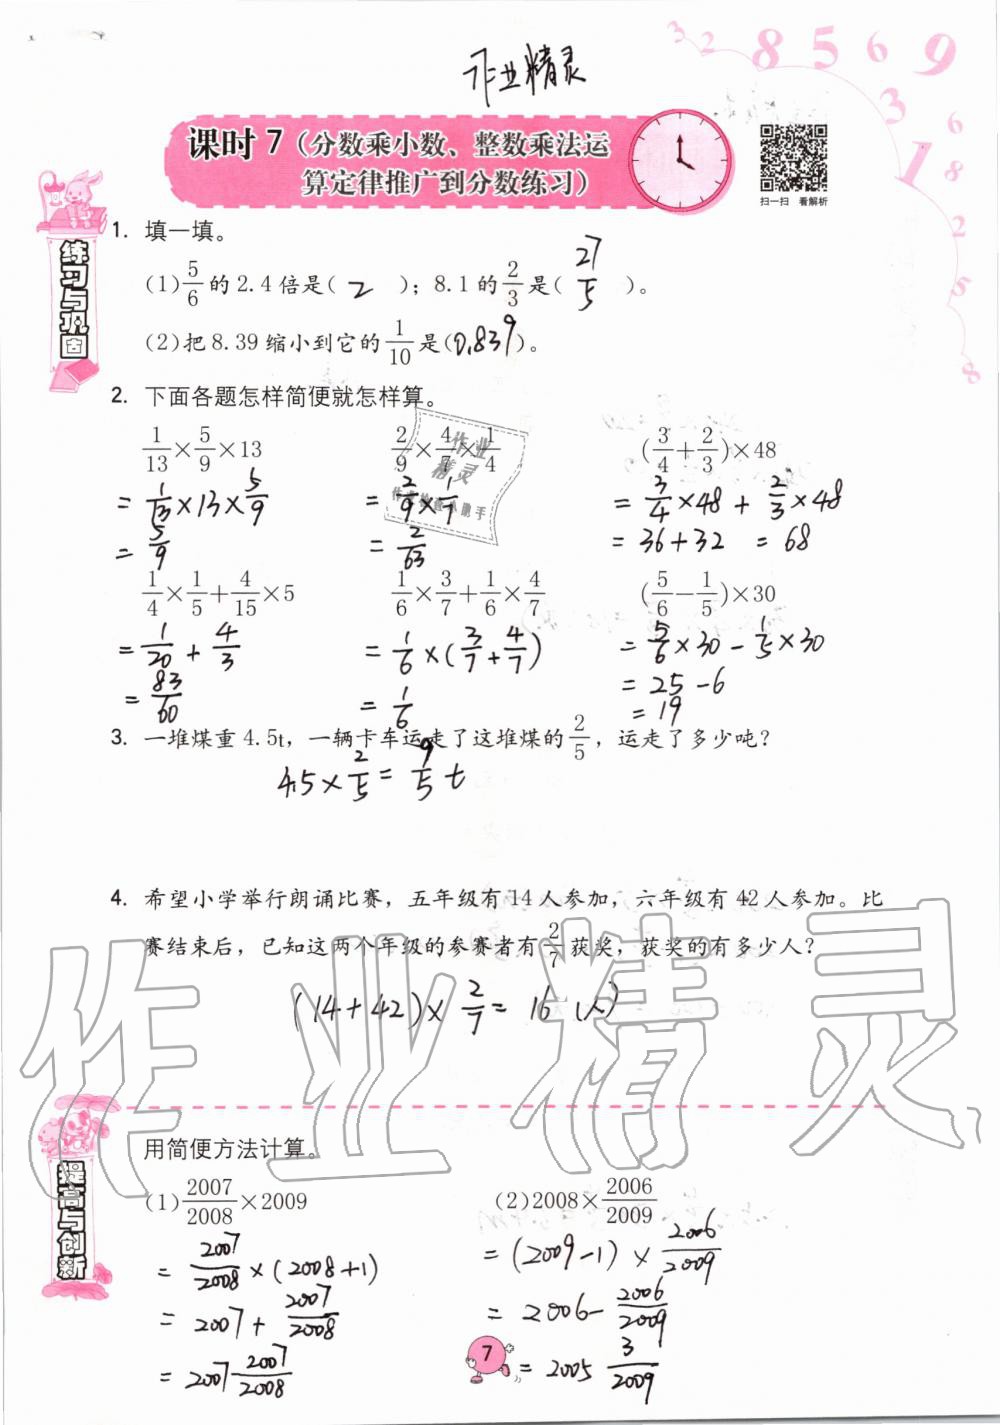 作业精灵
3 2 8 5 6 9 3 6 1 8 2 5 8
课时 7（分数乘小数、整数乘法运
算定律推广到分数练习）
扫一扫 看解析
练习与巩固
1. 填一填。
(1) 5/6 的 2.4 倍是( 2 )；8.1 的 2/3 是( 27/5 )。
(2)把 8.39 缩小到它的 1/10 是(0.839)。
2. 下面各题怎样简便就怎样算。
1/13×5/9×13 2/9×4/7×1/4 (3/4+2/3)×48
=1/13×13×5/9 =2/9×1/7 =3/4×48+2/3×48
=5/9 =2/63 =36+32 =68
1/4×1/5+4/15×5 1/6×3/7+1/6×4/7 (5/6−1/5)×30
=1/20+4/3 =1/6×(3/7+4/7) =5/6×30−1/5×30
=83/60 =1/6 =25−6
=19
3. 一堆煤重 4.5t，一辆卡车运走了这堆煤的 2/5，运走了多少吨？
4.5×2/5=9/5 t
4. 希望小学举行朗诵比赛，五年级有 14 人参加，六年级有 42 人参加。比
赛结束后，已知这两个年级的参赛者有 2/7 获奖，获奖的有多少人？
(14+42)×2/7=16(人)
作业精灵
提高与创新
用简便方法计算。
(1) 2007/2008×2009 (2)2008×2006/2009
=2007/2008×(2008+1) =(2009−1)×2006/2009
=2007+2007/2008 =2006−2006/2009
=2007 2007/2008 =2005 3/2009
7